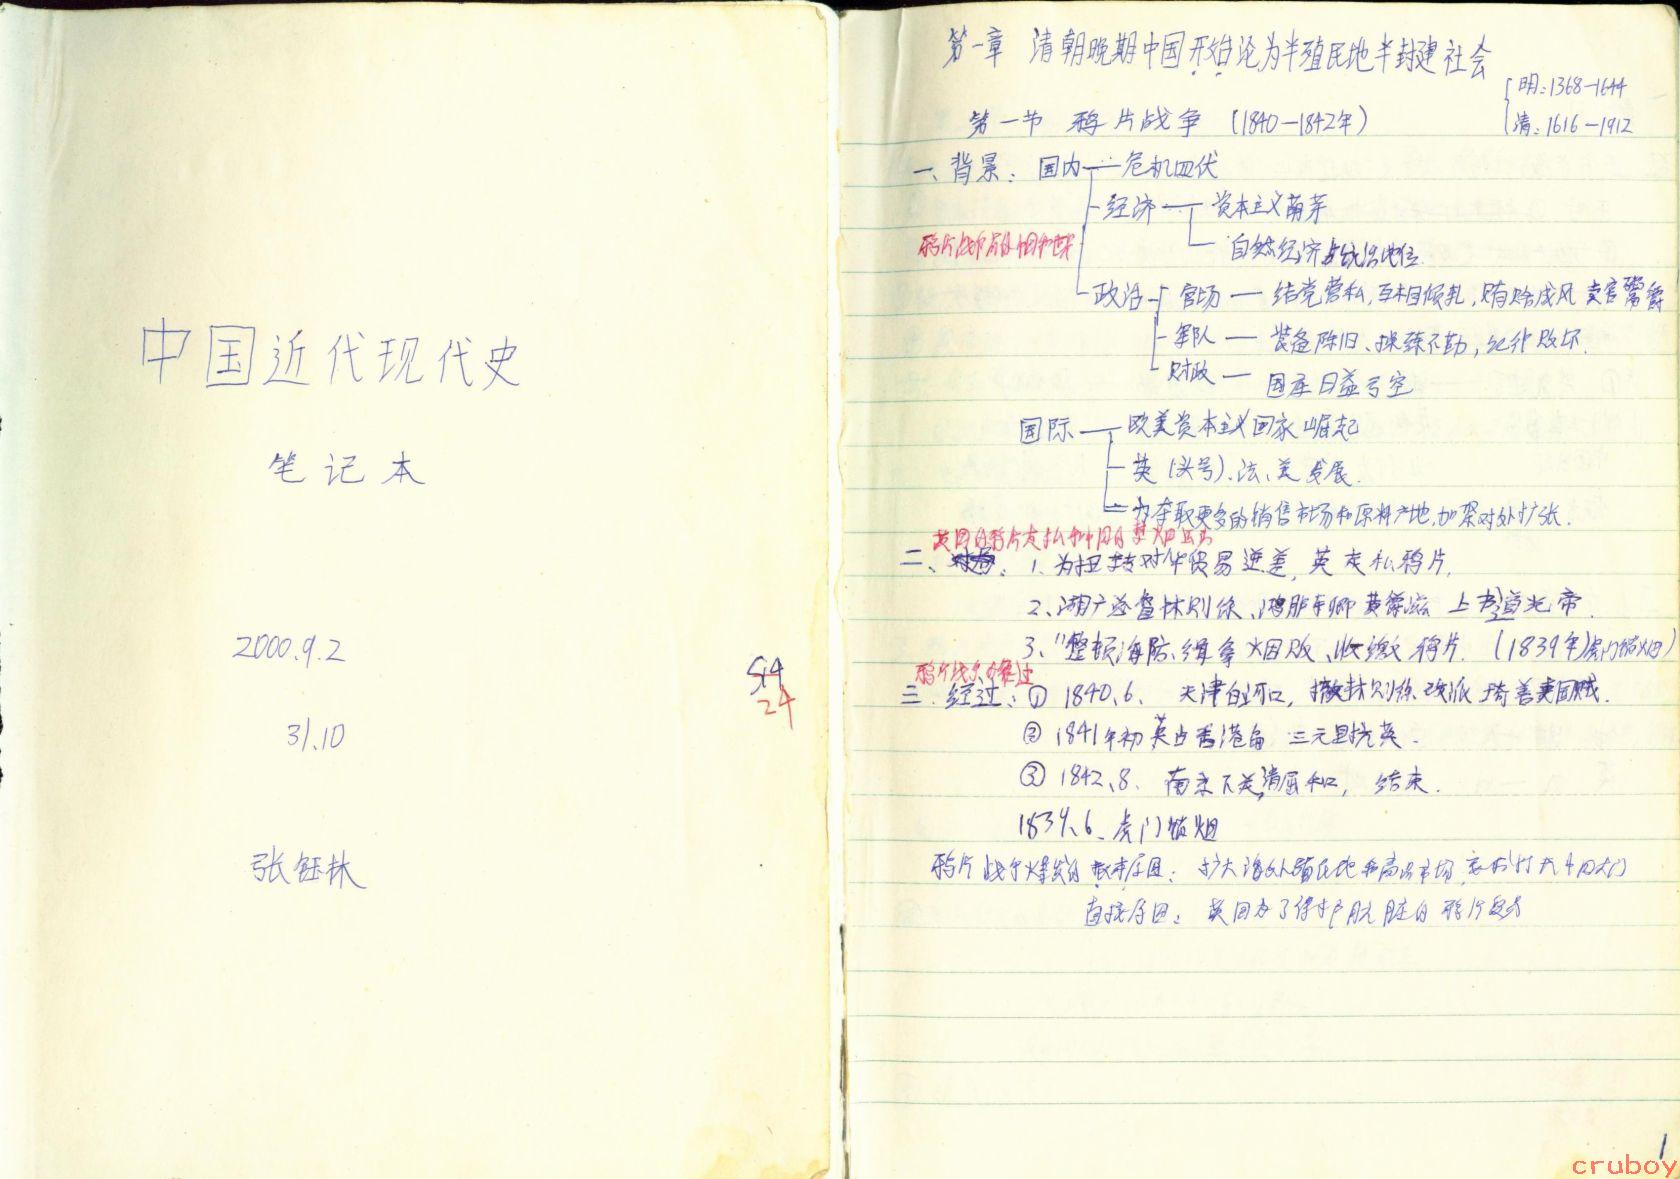 中国近代现代史
笔记本
2000.9.2
31.10
张钰林
54
24
第一章 清朝晚期中国开始沦为半殖民地半封建社会
明:1368-1644
清:1616-1912
第一节 鸦片战争 (1840-1842年)
一、背景: 国内 危机四伏
经济 资本主义萌芽
鸦片战争前的中国和世界
自然经济占统治地位
政治 官场 — 结党营私,互相倾轧,贿赂成风 卖官鬻爵
军队 — 装备陈旧、操练不勤,纪律败坏.
财政 — 国库日益亏空
国际 欧美资本主义国家崛起
英(头号)、法、美发展.
为夺取更多的销售市场和原料产地,加紧对外扩张.
英国的鸦片走私和中国的禁烟运动
二、 1、为扭转对华贸易逆差,英走私鸦片.
2、湖广总督林则徐、鸿胪寺卿黄爵滋上书道光帝.
3、"整顿海防、缉拿烟贩、收缴鸦片. (1839年)虎门销烟)
鸦片战争的经过
三、经过:① 1840.6、 天津白河口,撤林则徐 改派 琦善卖国贼.
② 1841年初 英占香港岛 三元里抗英.
③ 1842、8、 南京下关,清屈和, 结束.
1839、6、虎门销烟
鸦片战争爆发的根本原因: 扩大海外殖民地和商品市场, 打开中国大门
直接原因: 英国为了保护肮脏的鸦片贸易
1
cruboy